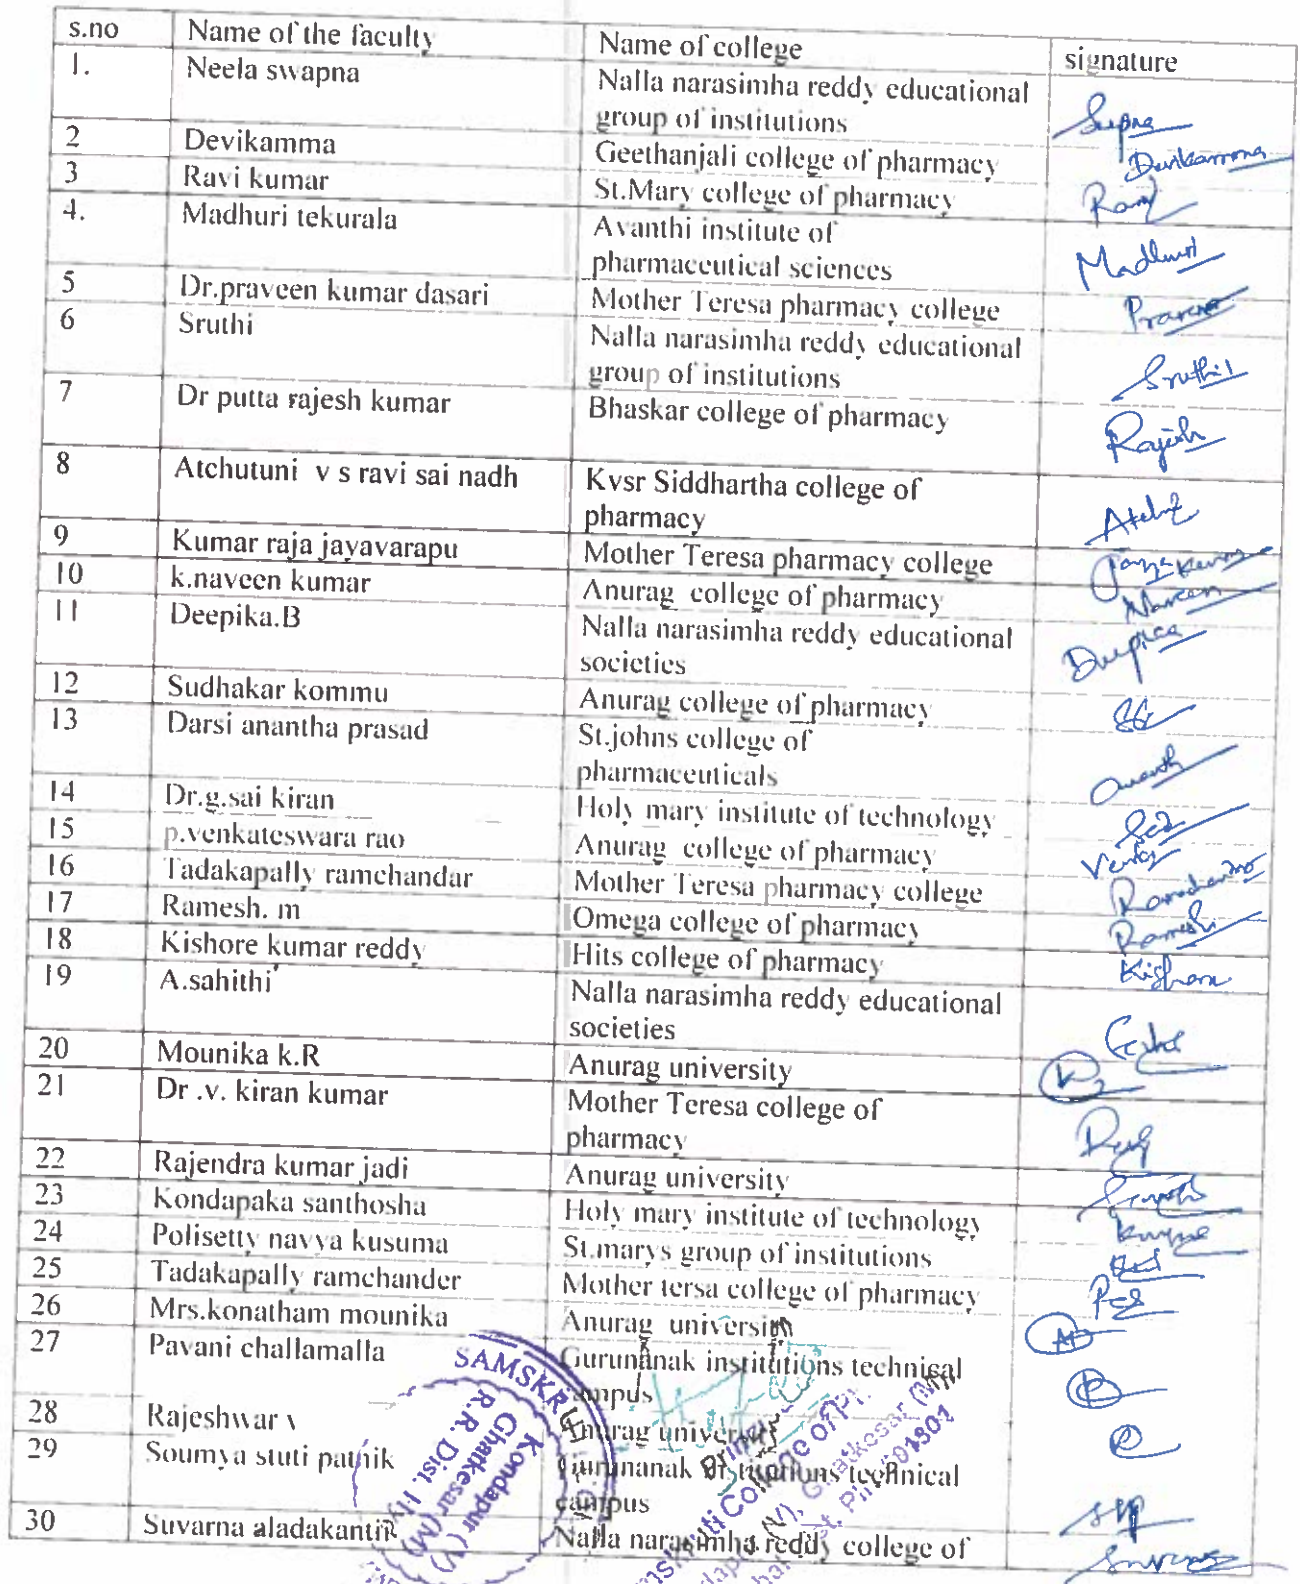 s.no Name of the faculty Name of college signature
1. Neela swapna Nalla narasimha reddy educational
group of institutions Swapna
2 Devikamma Geethanjali college of pharmacy Devikamma
3 Ravi kumar St.Mary college of pharmacy
4. Madhuri tekurala Avanthi institute of
pharmaceutical sciences Madhuri
5 Dr.praveen kumar dasari Mother Teresa pharmacy college Praveen
6 Sruthi Nalla narasimha reddy educational
group of institutions Sruthi
7 Dr putta rajesh kumar Bhaskar college of pharmacy Rajesh
8 Atchutuni v s ravi sai nadh Kvsr Siddhartha college of
pharmacy
9 Kumar raja jayavarapu Mother Teresa pharmacy college
10 k.naveen kumar Anurag college of pharmacy Naveen
11 Deepika.B Nalla narasimha reddy educational
societies Deepika
12 Sudhakar kommu Anurag college of pharmacy
13 Darsi anantha prasad St.johns college of
pharmaceuticals Ananth
14 Dr.g.sai kiran Holy mary institute of technology
15 p.venkateswara rao Anurag college of pharmacy
16 Tadakapally ramchandar Mother Teresa pharmacy college
17 Ramesh. m Omega college of pharmacy Ramesh
18 Kishore kumar reddy Hits college of pharmacy Kishore
19 A.sahithi Nalla narasimha reddy educational
societies
20 Mounika k.R Anurag university
21 Dr .v. kiran kumar Mother Teresa college of
pharmacy
22 Rajendra kumar jadi Anurag university
23 Kondapaka santhosha Holy mary institute of technology
24 Polisetty navya kusuma St.marys group of institutions
25 Tadakapally ramchander Mother tersa college of pharmacy
26 Mrs.konatham mounika Anurag university
27 Pavani challamalla Gurunanak institutions technical
campus
28 Rajeshwar v Anurag university
29 Soumya stuti patnik Gurunanak institutions technical
campus
30 Suvarna aladakantii Nalla narasimha reddy college of
SAMSKR
Kondapur (V)
Ghatkesar (M)
R.R. Dist.
College of
Ghatkesar (M)